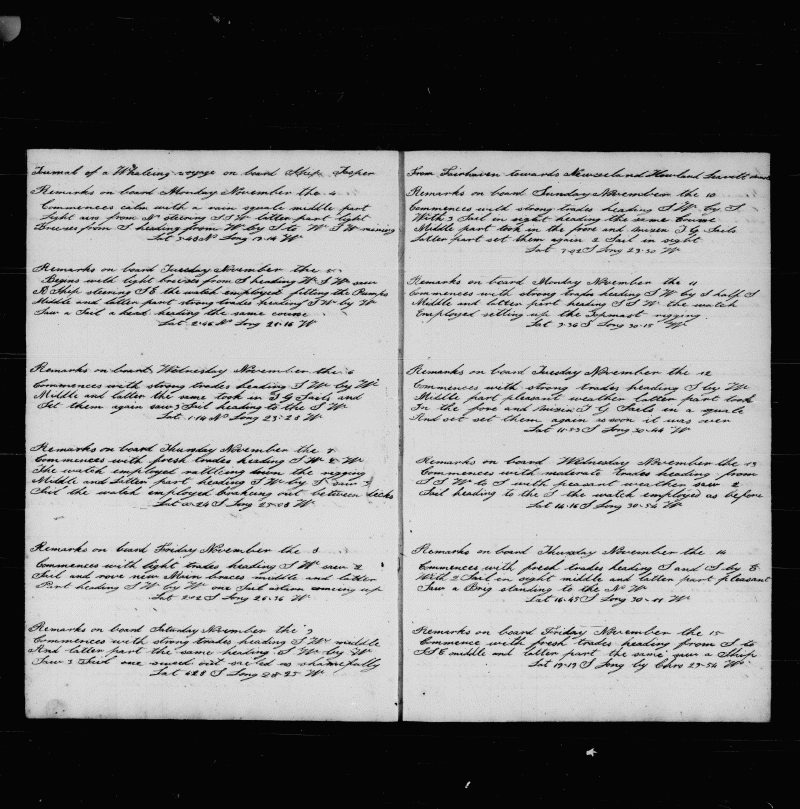 Journal of a Whaleing voyage on board Ship Jasper
Remarks on board Monday November the 4
Commences calm with a rain squale middle part
light airs from N steering S S W latter part light
Breeses from S heading from W by S to W S W raining
Lat 3-48 N Long W
Remarks on board Tuesday November the 5
Begins with light breeses from S heading W S W saw
A Ship steering S E the watch employed fitting the Pumps
Middle and latter part strong trades heading S W by W
Saw a Sail a head heading the same course
Lat 2-46 N Long 21-16 W
Remarks on board Wednesday November the 6
Commences with strong trades heading S W by W
Middle and latter the same took in T G Sails and
Set them again saw 3 Sail heading to the S W
Lat 1-14 N Long 23-28 W
Remarks on board Thursday November the 7
Commences with fresh trades heading S W
The watch employed rattleing down the rigging
Middle and Latter part heading S W by S saw 3
Sail the watch employed Breaking out between decks
Lat 0-24 S Long 25-08 W
Remarks on board Friday November the 8
Commences with light trades heading S W saw 2
Sail and rove new Main braces middle and latter
Part heading S W by W one Sail astern comeing up
Lat 2-02 S Long 26-36 W
Remarks on board Saturday November the 9
Commences with strong trades heading S W middle
And latter part the same heading S W by W
Saw 3 Sail one out us shamefully
Lat 4-28 S Long 28-25 W
From Fairhaven towards Newzeeland Howland Leavitt
Remarks on board Sunday November the 10
Commences with strong trades heading S W by S
With 3 Sail in sight heading the same Course
Middle part took in the fore and mizen T G Sails
Latter part set them again 2 Sail in sight
Lat 7-02 S Long 29-30 W
Remarks on board Monday November the 11
Commences with strong trades heading S W by S half S
Middle and latter part heading S S W the watch
Employed setting up the Topmast rigging
Lat 9-36 S Long 30-15 W
Remarks on board Tuesday November the 12
Commences with strong trades heading S by W
Middle part pleasant weather latter part took
In the fore and mizen T G Sails in a squale
And set set them again as soon it was over
Lat 11-53 S Long 30-44 W
Remarks on board Wednesday November the 13
Commences with moderate trades heading from
S S W to S with peasant weather saw 2
Sail heading to the S the watch employed as before
Lat 14-16 S Long 30-54 W
Remarks on board Thursday November the 14
Commences with fresh trades heading S and S by E
With 2 Sail in sight middle and latter part pleasant
Saw a Brig standing to the N W
Lat 16-43 S Long 30-11 W
Remarks on board Friday November the 15
Commence with fresh trades heading from S to
S S E middle and latter part the same saw a Ship
Lat 19-19 S Long by Chro 29-54 W